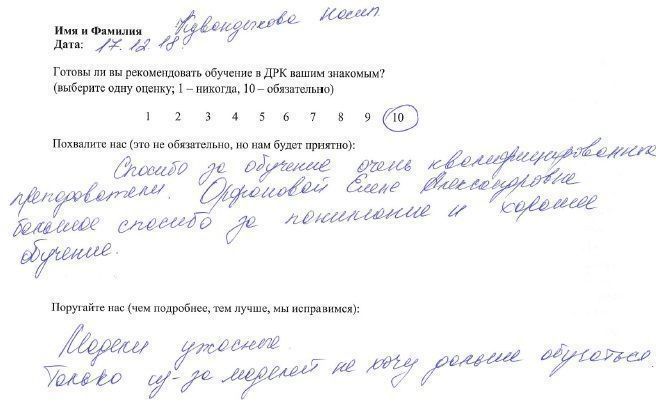 Имя и Фамилия
Дата: 17.12.18.
Готовы ли вы рекомендовать обучение в ДРК вашим знакомым?
(выберите одну оценку; 1 – никогда, 10 – обязательно)
1 2 3 4 5 6 7 8 9 10
Похвалите нас (это не обязательно, но нам будет приятно):
Спосибо за обучение очень квалифицированные
преподователи. Елене Александровне
большое спосибо за понимание и хорошее
обучение.
Поругайте нас (чем подробнее, тем лучше, мы исправимся):
Модели ужасные.
Только из-за моделей не хочу дальше обучаться.